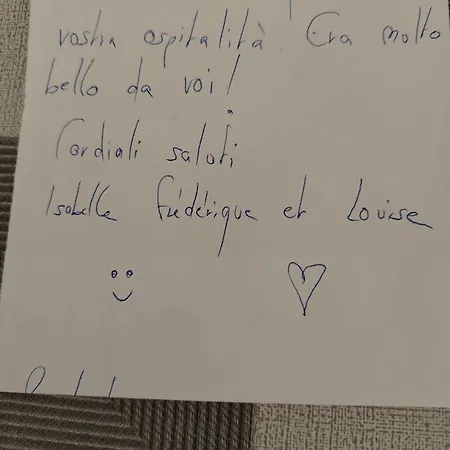 vostra ospitalità! Era molto
bello da voi!
Cordiali saluti
Isabelle Frédérique et Louise